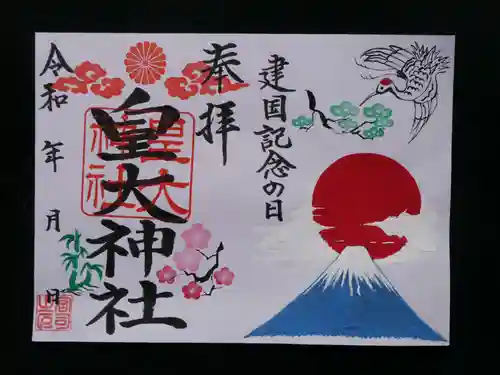 建国記念の日
奉拝
皇大神社
令和 年 月 日
皇大
神社